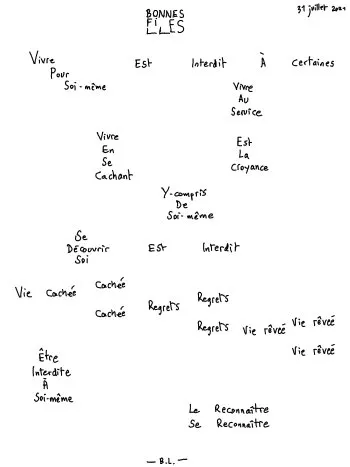 BONNES
FILLES
31 juillet 2021
Vivre
Pour
Soi-même
Est Interdit À Certaines
Vivre
Au
Service
Vivre
En
Se
Cachant
Est
La
Croyance
Y-compris
De
Soi-même
Se
Découvrir Est Interdit
Soi
Vie Cachée Cachée
Cachée
Regrets Regrets
Regrets Vie rêvée Vie rêvée
Vie rêvée
Être
Interdite
À
Soi-même
Le Reconnaître
Se Reconnaître
— B.L. —